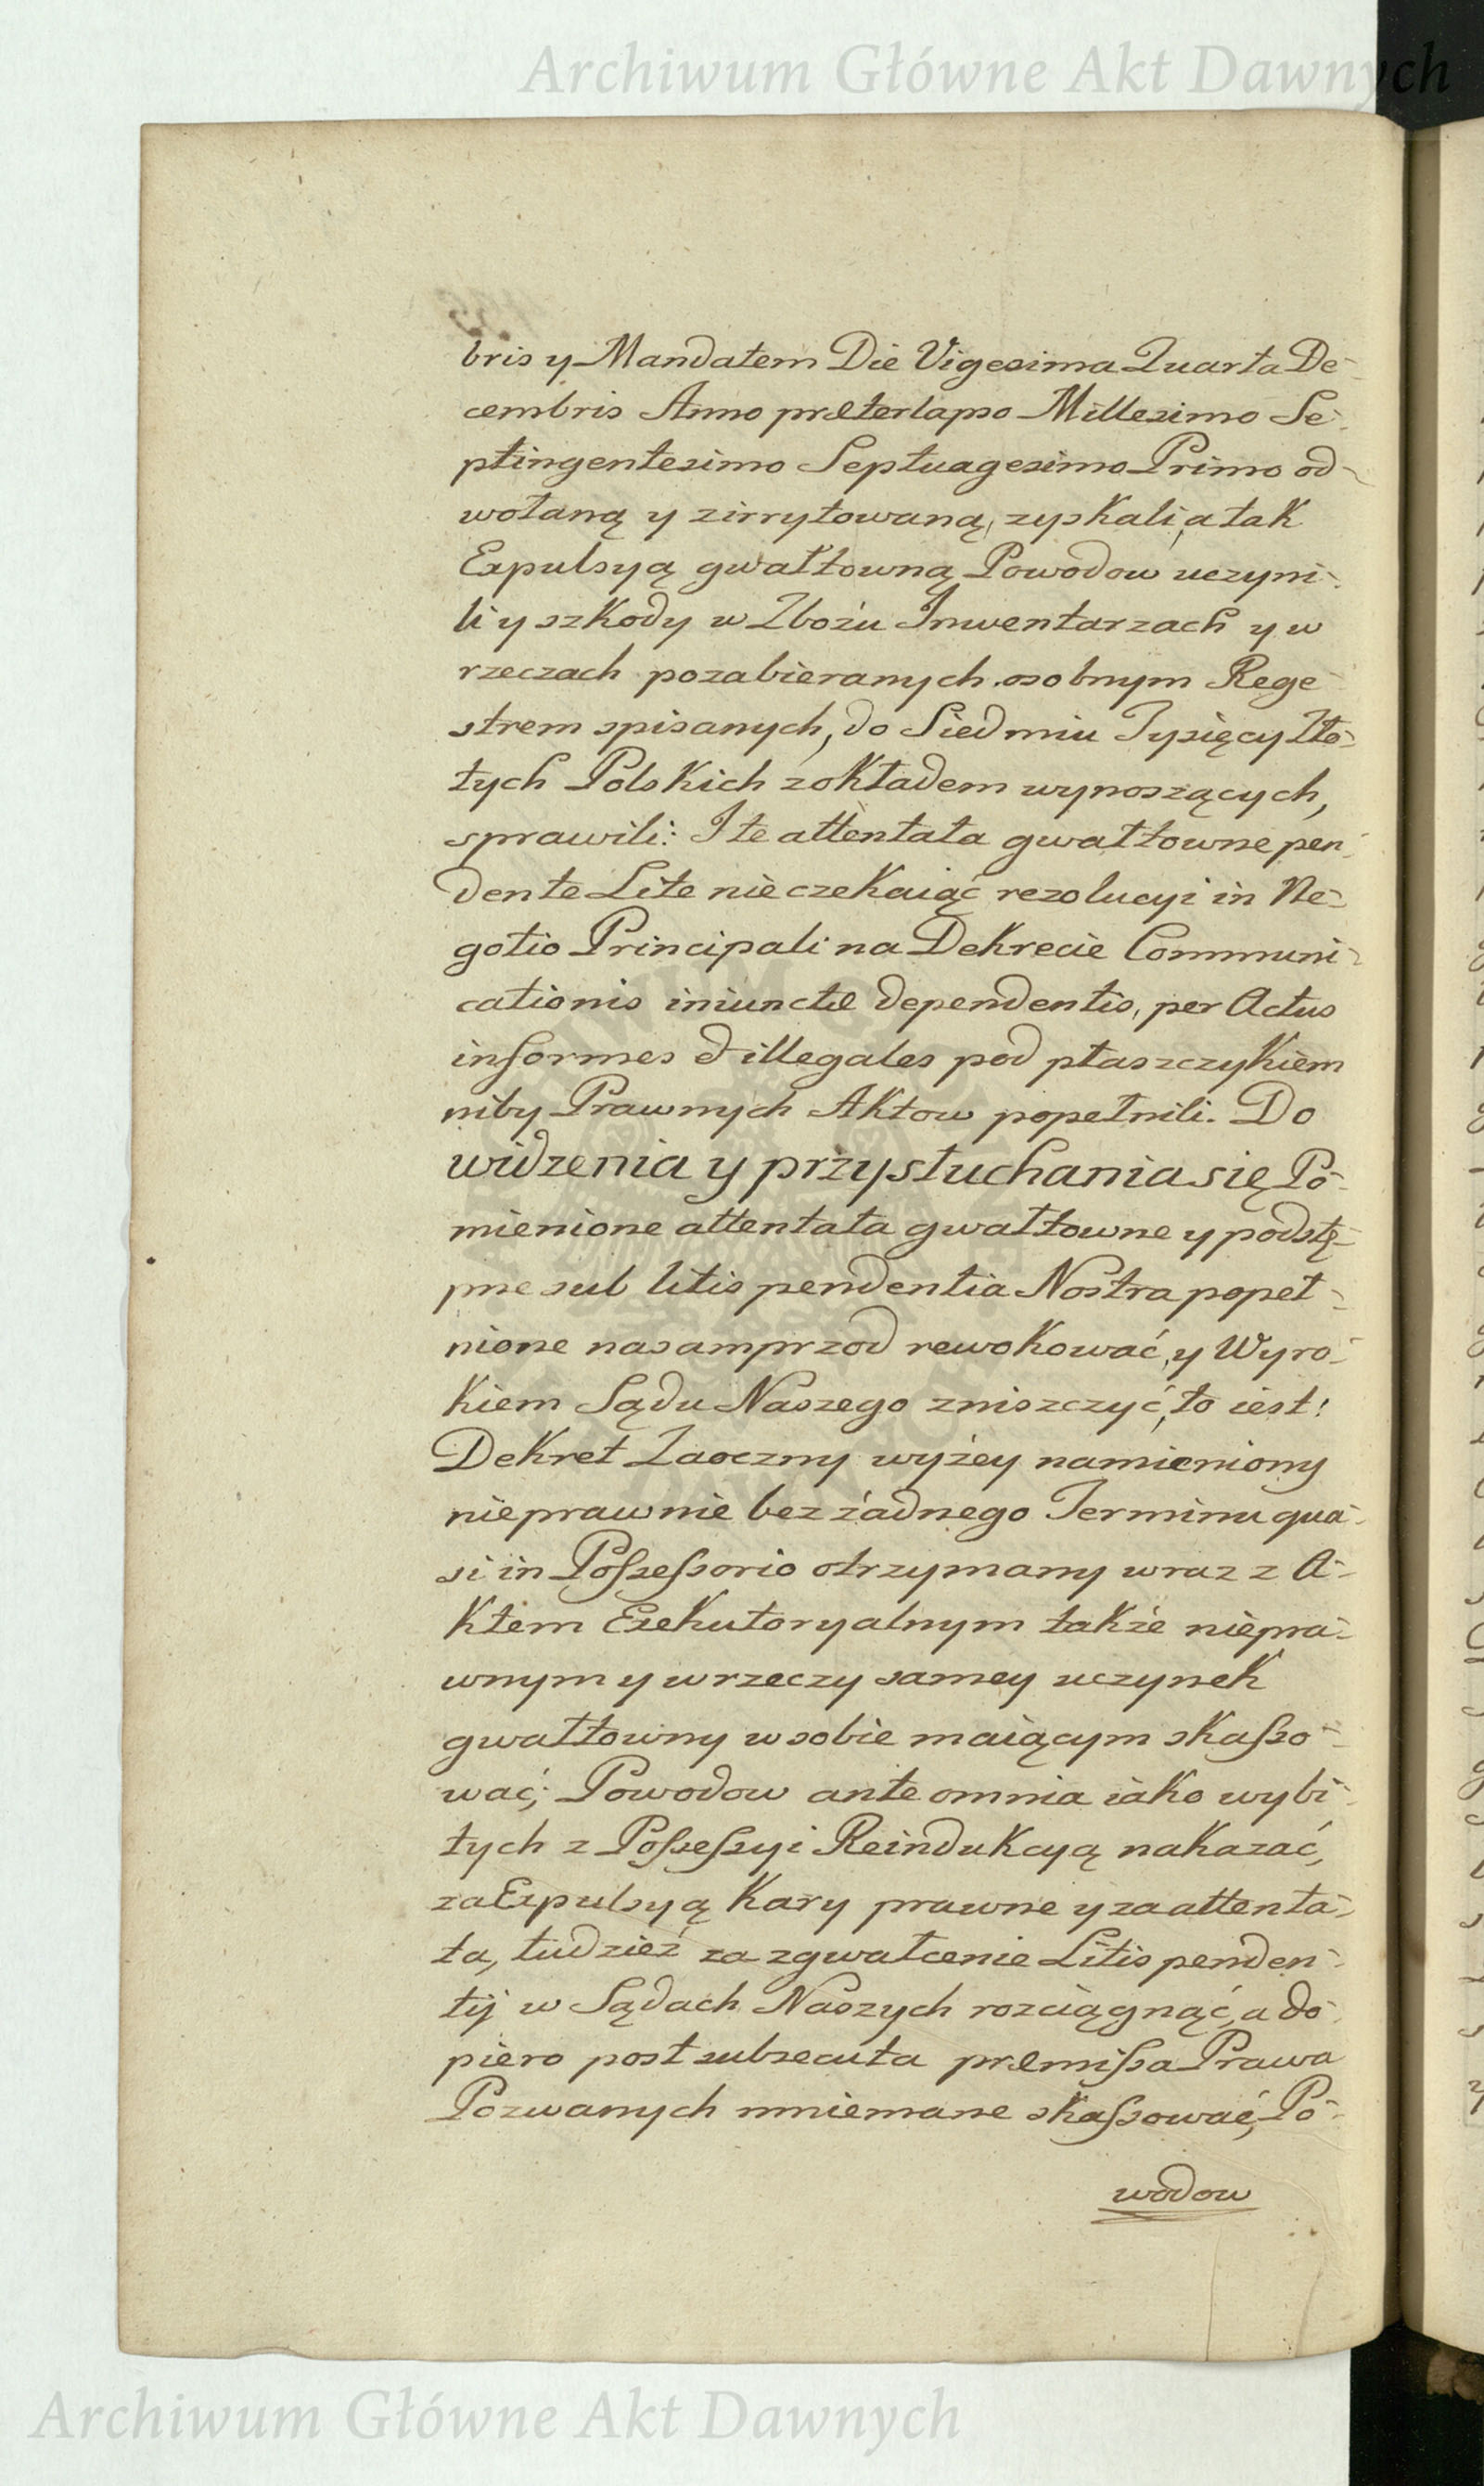 Archiwum Główne Akt Dawnych
bris y Mandatem Die Vigesima Quarta De-
cembris Anno præterlapso Millesimo Se-
ptingentesimo Septuagesimo Primo od-
wołaną y zirrytowaną, zyskali, a tak
Expulsyą gwałtowną Powodow uczyni-
li y szkody w Zbożu Inwentarzach y w
rzeczach pozabieranych osobnym Rege-
strem spisanych, do Siedmiu Tysięcy Zło-
tych Polskich zokładem wynoszących,
sprawili: I te attentata gwałtowne pen-
dente Lite nie czekaiąc rezolucyi in Ne-
gotio Principali na Dekrecie Communi-
cationis iniunctæ dependentis, per Actus
informes & illegales pod płaszczykiem
niby Prawnych Aktow popełnili. Do
widzenia y przysłuchania się Po-
mienione attentata gwałtowne y podstę-
pne sub litis pendentia Nostra popeł-
nione nasamprzod rewokować, y Wyro-
kiem Sądu Naszego zniszczyć, to iest:
Dekret Zaoczny wyżey namieniony
nieprawnie bez żadnego Terminu qua-
si in Possessorio otrzymany wraz z A-
ktem Exekutoryalnym także niepra-
wnym y w rzeczy samey uczynek
gwałtowny w sobie maiącym skasso-
wać; Powodow ante omnia iako wybi-
tych z Possessyi Reindukcyą nakazać,
za Expulsyą Kary prawne y za attenta-
ta, tudzież za zgwałcenie Litis penden-
tij w Sądach Naszych rozciągnąć, a do-
piero post subsecuta præmissa Prawa
Pozwanych mniemane skassować, Po-
wodow
Archiwum Główne Akt Dawnych